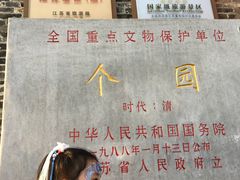 江苏省旅游局
国家级旅游景区
全国重点文物保护单位
个园
时代：清
中华人民共和国国务院
一九八八年一月十三日公布
苏省人民政府立